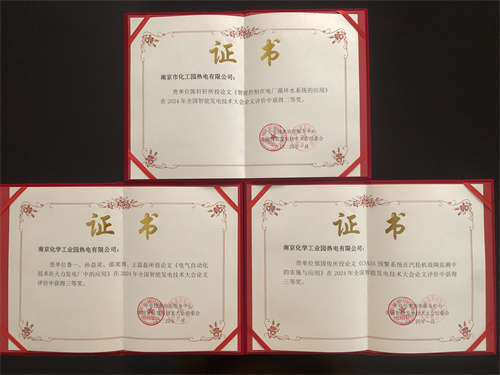 证书
南京市化工园热电有限公司：
贵单位陈轩轩所投论文《智能控制在电厂循环水系统的应用》
在2024年全国智能发电技术大会论文评价中获得二等奖。
证书
南京化学工业园热电有限公司：
贵单位鲁一、孙焱灵、邵奕溥、王磊磊所投论文《电气自动化
技术在火力发电厂中的应用》在2024年全国智能发电技术大会论文
评价中获得三等奖。
证书
南京化学工业园热电有限公司：
贵单位邵国俊所投论文《预警系统在汽轮机故障监测中
的实施与应用》在2024年全国智能发电技术大会论文评价中获得
三等奖。